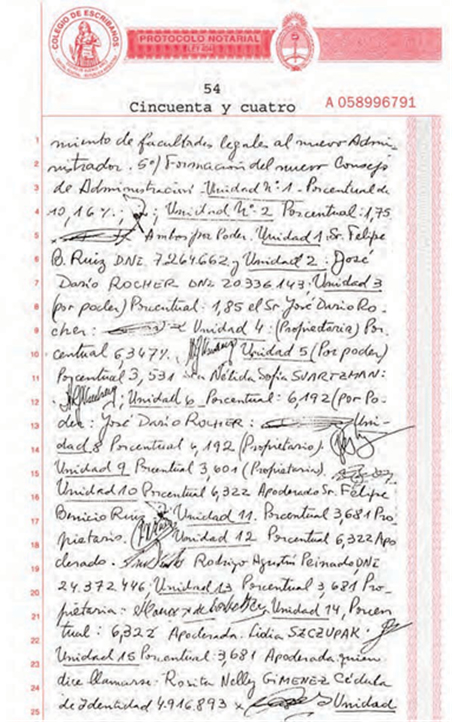 COLEGIO DE ESCRIBANOS
PROTOCOLO NOTARIAL
54
Cincuenta y cuatro
A 058996791
1 miento de facultades legales al nuevo Admi-
2 nistrador. 5º) Formación del nuevo Consejo
3 de Administración Unidad Nº 1 - Porcentual de
4 10,16%; Unidad Nº 2 Porcentual: 1,75
5 Ambos por Poder. Unidad 1 Sr. Felipe
6 B. Ruiz DNI. 7.264.662 y Unidad 2: José
7 Darío ROCHER DNI 20.336.143, Unidad 3
8 (por poder) Porcentual: 1,85 el Sr José Dario Ro-
9 cher: Unidad 4: (Propietaria) Por-
10 centual 6,347%. Unidad 5 (Por poder)
11 Porcentual 3,531 Nélida Sofía SVARTZMAN:
12 Unidad 6 Porcentual: 6,192 (por Po-
13 der: José Dario ROCHER: Uni-
14 dad 8 Porcentual 6,192 (Propietario).
15 Unidad 9 Porcentual 3,601 (Propietarios).
16 Unidad 10 Porcentual 6,322 Apoderado Sr. Felipe
17 Benicio Ruiz Unidad 11. Porcentual 3,681 Pro-
18 pietario. Unidad 12 Porcentual 6,322 Apo
19 derado. Rodrigo Agustín Peinado DNI
20 24.372.446; Unidad 13 Porcentual 3,681 Pro-
21 pietaria: Unidad 14, Porcen
22 tual: 6,322 Apoderada. Lidia SZCZUPAK.
23 Unidad 15 Porcentual 3,681 Apoderada quien
24 dice llamarse: Rosita Nelly GIMENEZ Cédula
25 de identidad 4.916.893 x Unidad